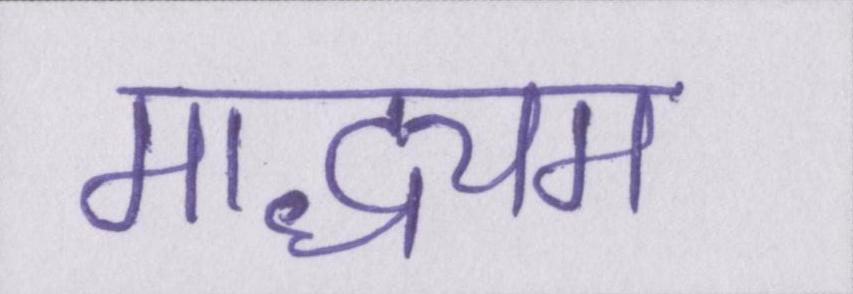 माद्ध्यम